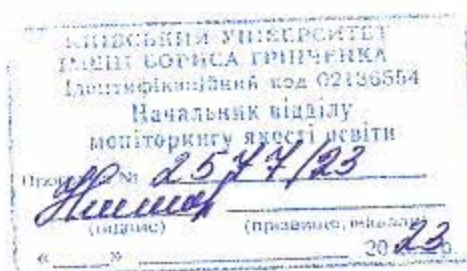 КИЇВСЬКИЙ УНІВЕРСИТЕТ
ІМЕНІ БОРИСА ГРІНЧЕНКА
Ідентифікаційний код 02136554
Начальник відділу
моніторингу якості освіти
№ 2577/23
(підпис) (прізвище, ініціали)
« » 2023 р.